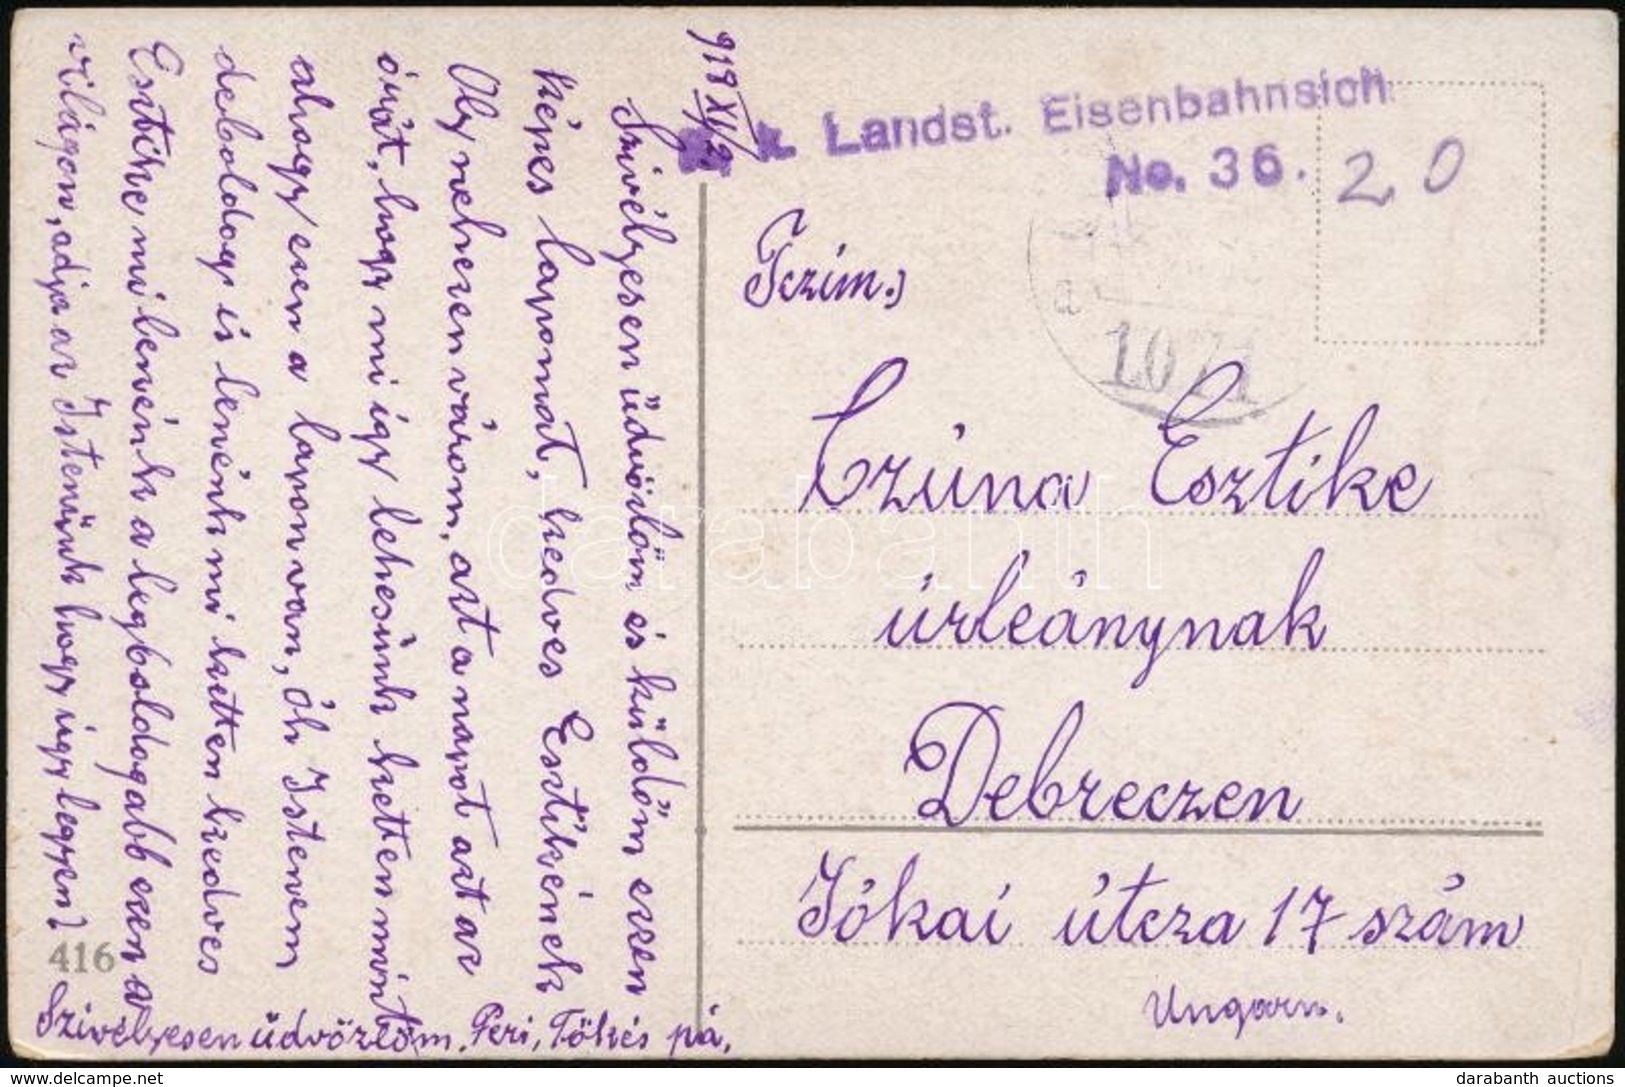 918 XI/2
Szivélyesen üdvözlöm és küldöm ezen
képes lapomat, kedves Esztikének
Oly nehezen várom, azt a napot azt az
órát, hogy mi így lehesünk ketten mint
ahogy ezen a lapon van, óh Istenem
deboldog is lenénk mi ketten kedves
Esztike mi lenénk a legboldogabb ezen a
világon, adja az Istenünk hogy úgy legyen?
416
Szivélyesen üdvözlöm. Peri, Tökés pá.
k. Landst. Eisenbahnsich
No. 36.
20
a
1071
Tczím.)
Czúna Esztike
úrleánynak
Debreczen
Jókai útcza 17 szám
Ungarn.
darabanth
darabanth auctions